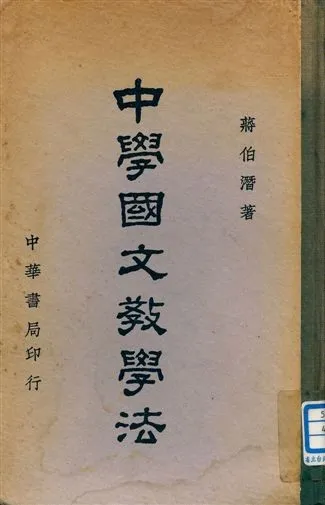 蔣伯潛著
中學國文教學法
中華書局印行
5
4